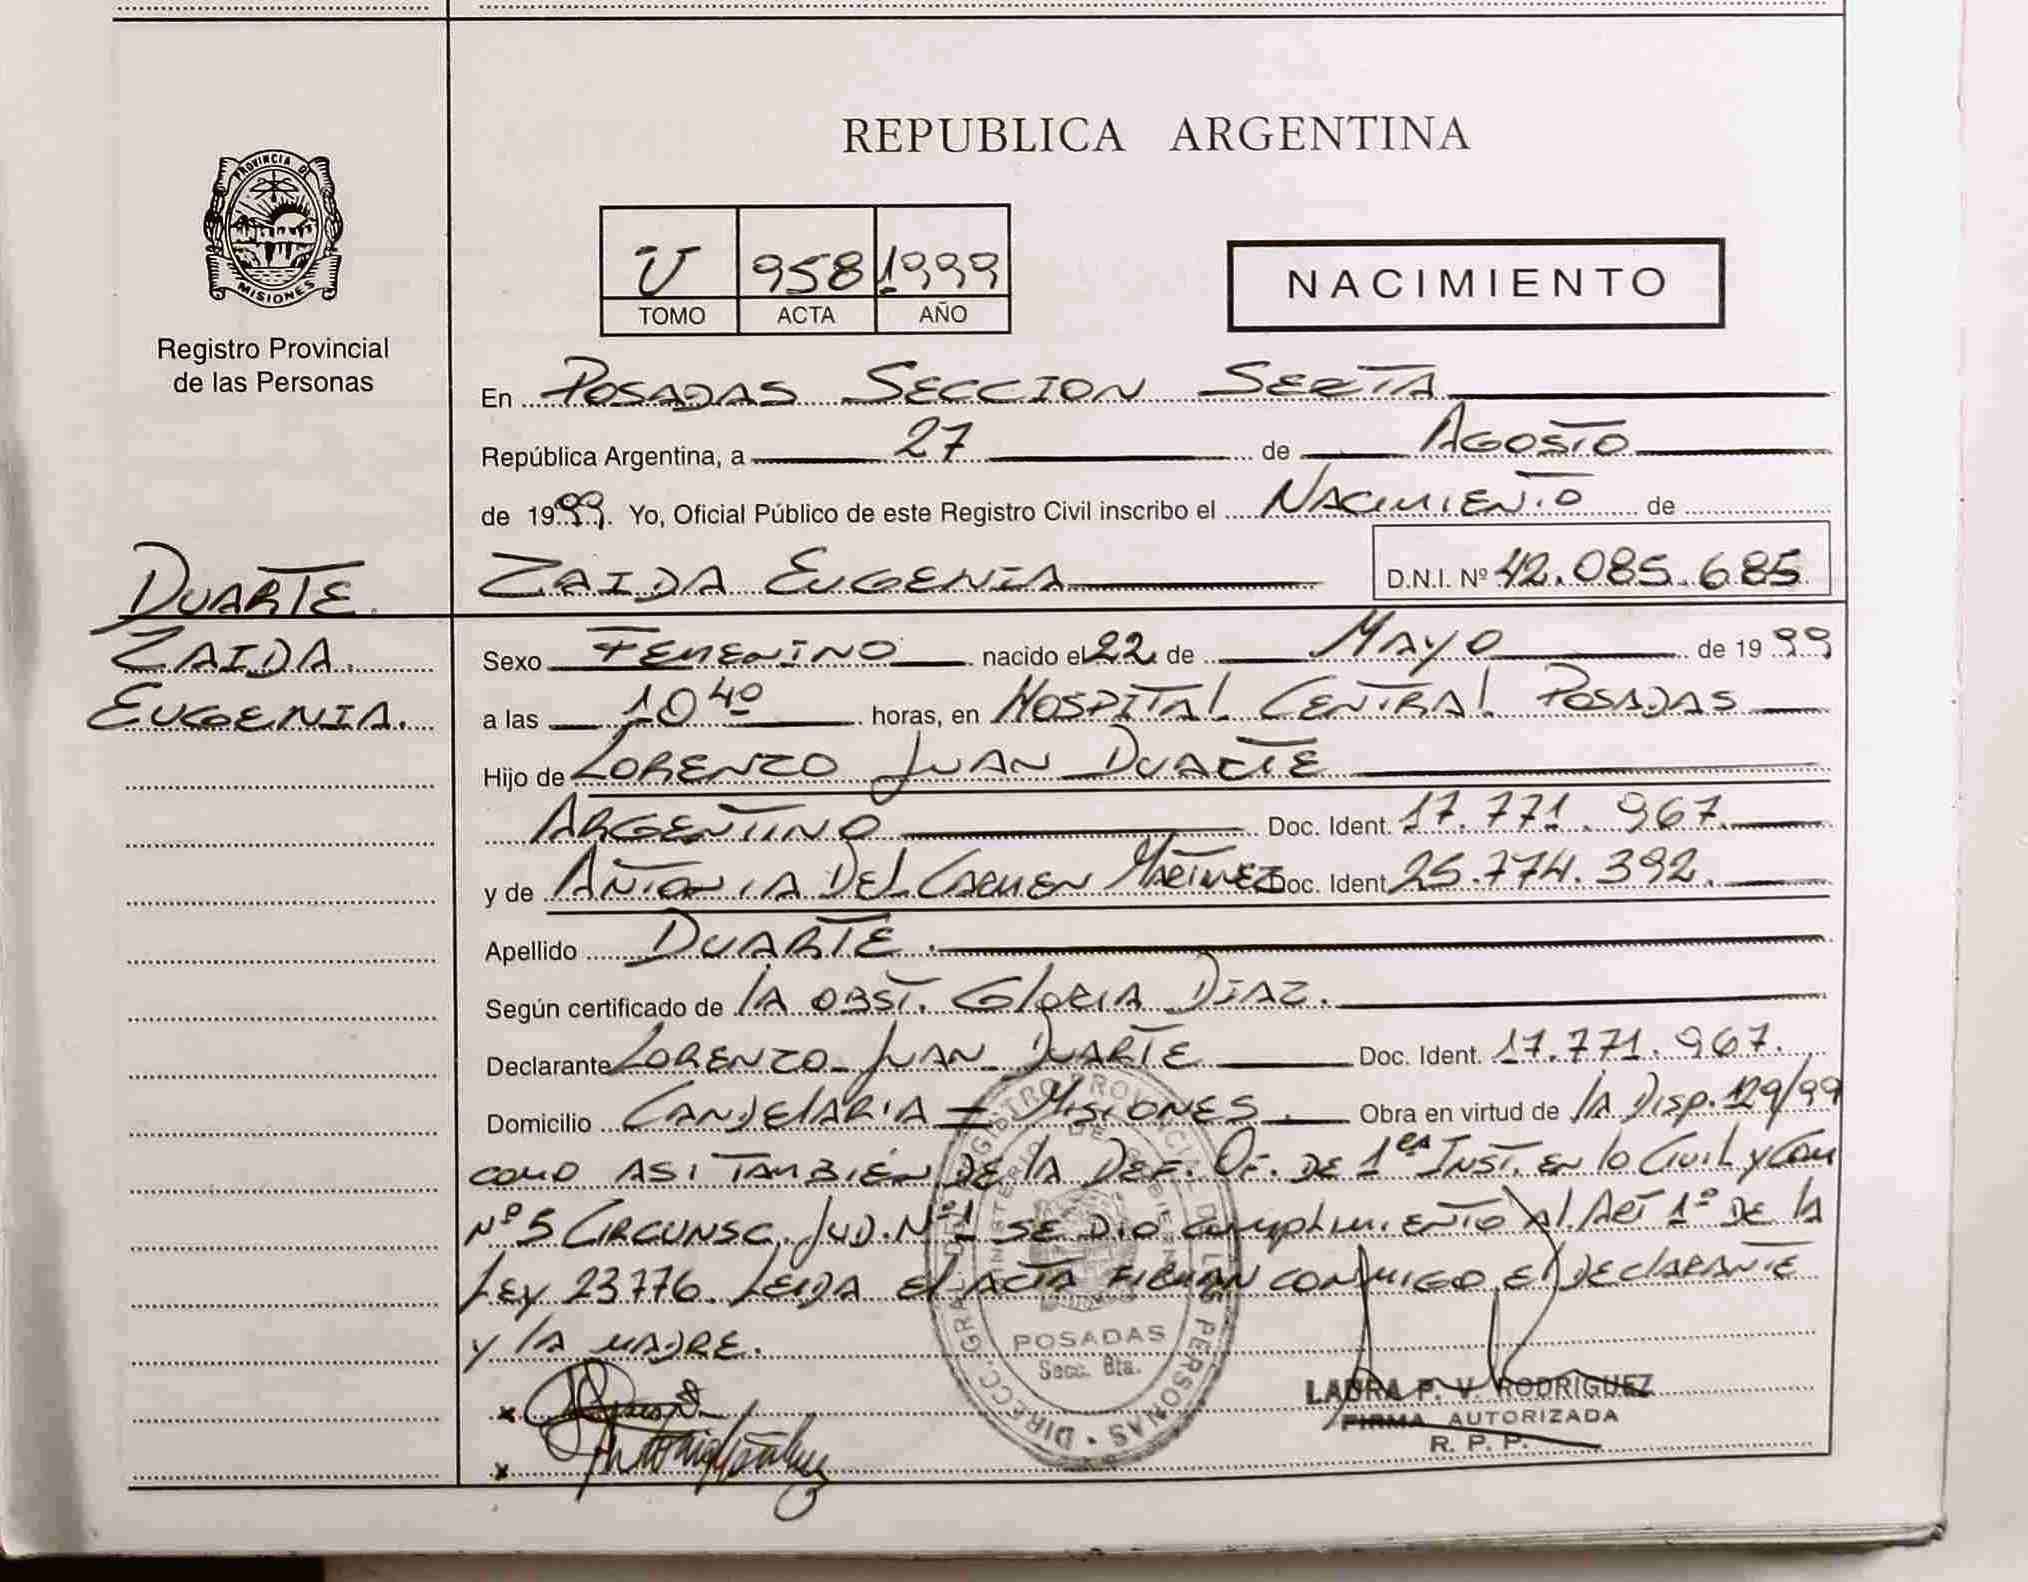 REPUBLICA ARGENTINA
PROVINCIA DE
MISIONES
Registro Provincial
de las Personas
U 958 1999
TOMO ACTA AÑO
NACIMIENTO
En POSADAS SECCION SEXTA
República Argentina, a 27 de AGOSTO
de 1999. Yo, Oficial Público de este Registro Civil inscribo el NACIMIENTO de
ZAIDA EUGENIA D.N.I. Nº 42.085.685
DUARTE
ZAIDA
EUGENIA.
Sexo FEMENINO nacido el 22 de MAYO de 1999
a las 10 40 horas, en HOSPITAL CENTRAL POSADAS
Hijo de LORENZO JUAN DUARTE
ARGENTINO Doc. Ident. 17.771.967.
y de ANTONIA DEL CARMEN MARTINEZ Doc. Ident. 25.774.392.
Apellido DUARTE.
Según certificado de lA OBST. GlORIA DIAZ.
Declarante LORENZO JUAN DUARTE Doc. Ident. 17.771.967.
Domicilio CANDElARIA = MISIONES. Obra en virtud de lA DISP. 129/99
COMO ASI TAMBIEN DE lA DEF. OF. DE 1era INST. EN lO CIVIL Y COM
Nº 5 CIRCUNSC. JUD. Nº 1 SE DIO CUMPLIMIENTO Al ART 1º DE lA
LEY 23776. LEIDA El ACTA FIRMAN CONMIGO El DEClARANTE
Y lA MADRE.
x
x
DIRECC. GRAL. DEL REGISTRO PROVINCIAL DE LAS PERSONAS
MINISTERIO DE GOBIERNO
POSADAS
Secc. 6ta.
LAURA P. V. RODRIGUEZ
FIRMA AUTORIZADA
R. P. P.